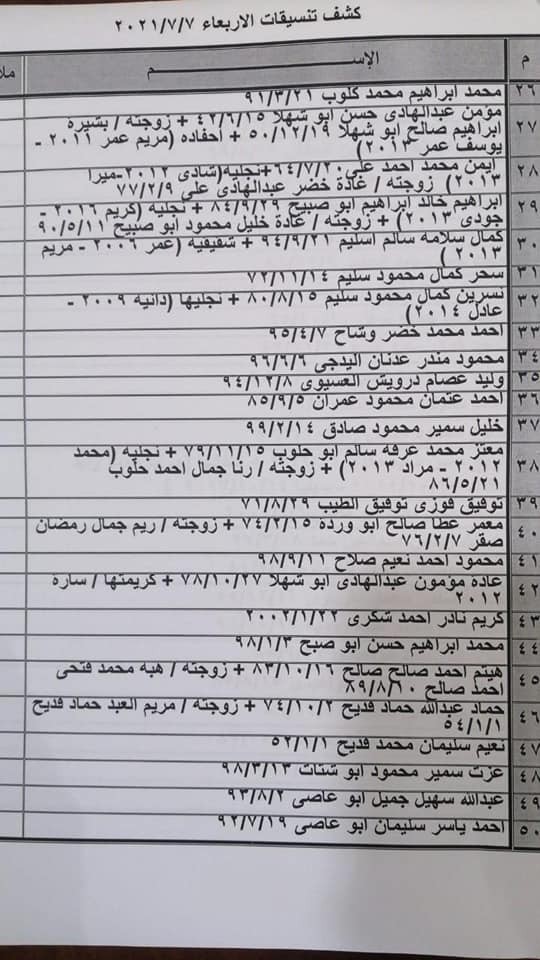 كشف تنسيقات الاربعاء ٢٠٢١/٧/٧
م الإســـــــــــــم ملا
٢٦ محمد ابراهيم محمد كلوب ٩١/٣/٢١
٢٧ مؤمن عبدالهادى حسن ابو شهلا ٤٢/٦/١٥ + زوجته / بشيرة
ابراهيم صالح ابو شهلا ٥٠/١٢/١٩ + احفاده (مريم عمر ٢٠١١ -
يوسف عمر ٢٠١٣)
٢٨ ايمن محمد احمد على ٦٤/٧/٢٠+نجليه(شادى ٢٠١٢-ميرا
٢٠١٣) زوجته / غادة خضر عبدالهادى على ٧٧/٢/٩
٢٩ ابراهيم خالد ابراهيم ابو صبيح ٨٤/٩/٢٩ + نجليه (كريم ٢٠١٦ -
جودى ٢٠١٣) + زوجته / غادة خليل محمود ابو صبيح ٩٠/٥/١١
٣٠ كمال سلامه سالم اسليم ٩٤/٩/٢١ + شقيقيه (عمر ٢٠٠٦ - مريم
٢٠١٣)
٣١ سحر كمال محمود سليم ٧٢/١١/١٤
٣٢ نسرين كمال محمود سليم ٨٠/٨/١٥ + نجليها (دانيه ٢٠٠٩ -
عادل ٢٠١٤)
٣٣ احمد محمد خضر وشاح ٩٥/٤/٧
٣٤ محمود منذر عدنان اليدجى ٩٦/٦/٦
٣٥ وليد عصام درويش العسيوى ٩٤/١٢/٨
٣٦ احمد عثمان محمود عمران ٨٥/٩/٥
٣٧ خليل سمير محمود صادق ٩٩/٢/١٤
٣٨ معتز محمد عرفه سالم ابو حلوب ٧٩/١١/١٥ + نجليه (محمد
٢٠١٢ - مراد ٢٠١٣) + زوجته / رنا جمال احمد حلوب
٨٦/٥/٢١
٣٩ توفيق فوزى توفيق الطيب ٧١/٨/٢٩
٤٠ معمر عطا صالح ابو وردة ٧٤/٢/١٥ + زوجته / ريم جمال رمضان
صقر ٧٦/٢/٧
٤١ محمود احمد نعيم صلاح ٩٨/٩/١١
٤٢ غادة مؤمون عبدالهادى ابو شهلا ٧٨/١٠/٢٧ + كريمتها / سارة
٢٠١٢
٤٣ كريم نادر احمد شكرى ٢٠٠٢/١/٢٢
٤٤ محمد ابراهيم حسن ابو صبح ٩٨/١/٣
٤٥ هيتم احمد صالح صالح ٨٣/١٠/١٦ + زوجته / هبه محمد فتحى
احمد صالح ٨٩/٨/١٠
٤٦ حماد عبدالله حماد قديح ٧٤/١٠/٢ + زوجته / مريم العبد حماد قديح
٥٤/١/١
٤٧ نعيم سليمان محمد قديح ٥٢/١/١
٤٨ عزت سمير محمود ابو شتات ٩٨/٣/١٣
٤٩ عبدالله سهيل جميل ابو عاصى ٩٣/٨/٢
٥٠ احمد ياسر سليمان ابو عاصى ٩٢/٧/١٩